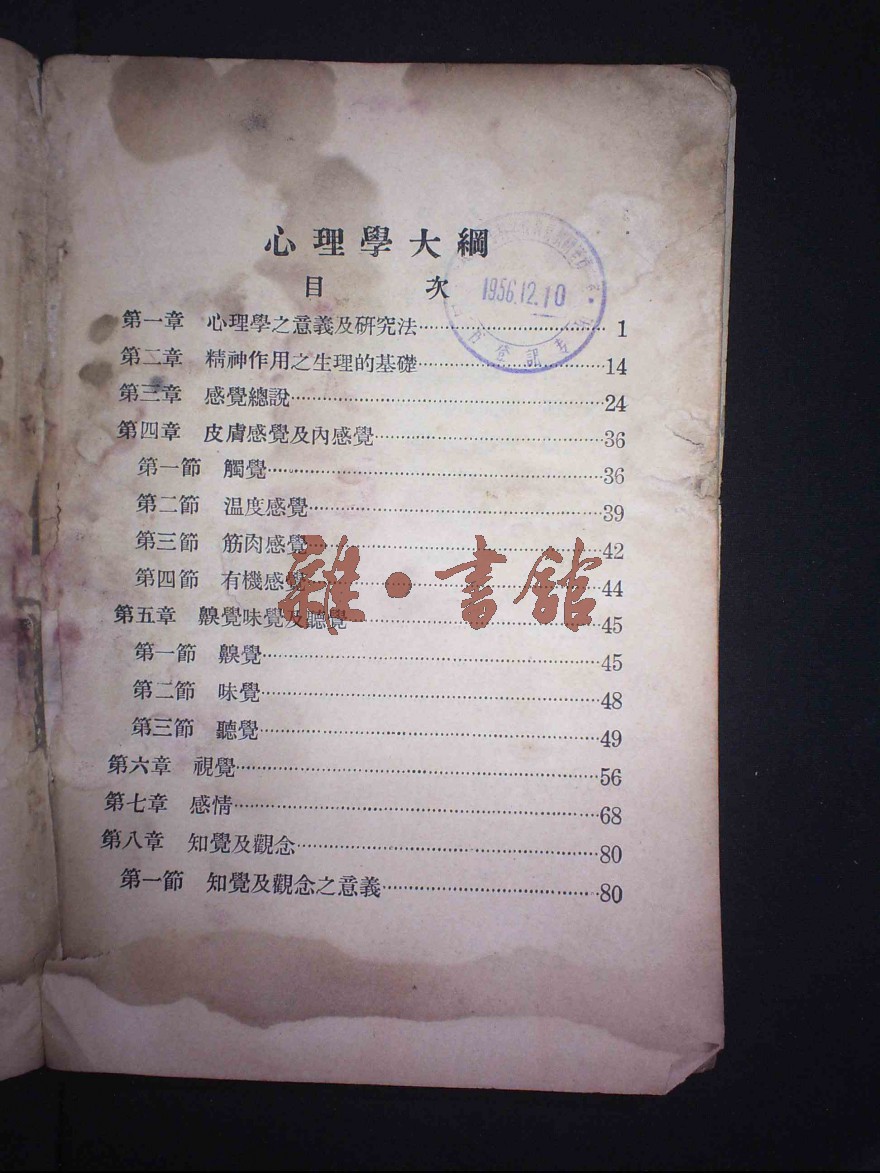 心理學大綱
目 次
第一章 心理學之意義及研究法……1
第二章 精神作用之生理的基礎……14
第三章 感覺總說……24
第四章 皮膚感覺及內感覺……36
第一節 觸覺……36
第二節 温度感覺……39
第三節 筋肉感覺……42
第四節 有機感覺……44
第五章 齅覺味覺及聽覺……45
第一節 齅覺……45
第二節 味覺……48
第三節 聽覺……49
第六章 視覺……56
第七章 感情……68
第八章 知覺及觀念……80
第一節 知覺及觀念之意義……80
1956.12.10
登記
雜·書館